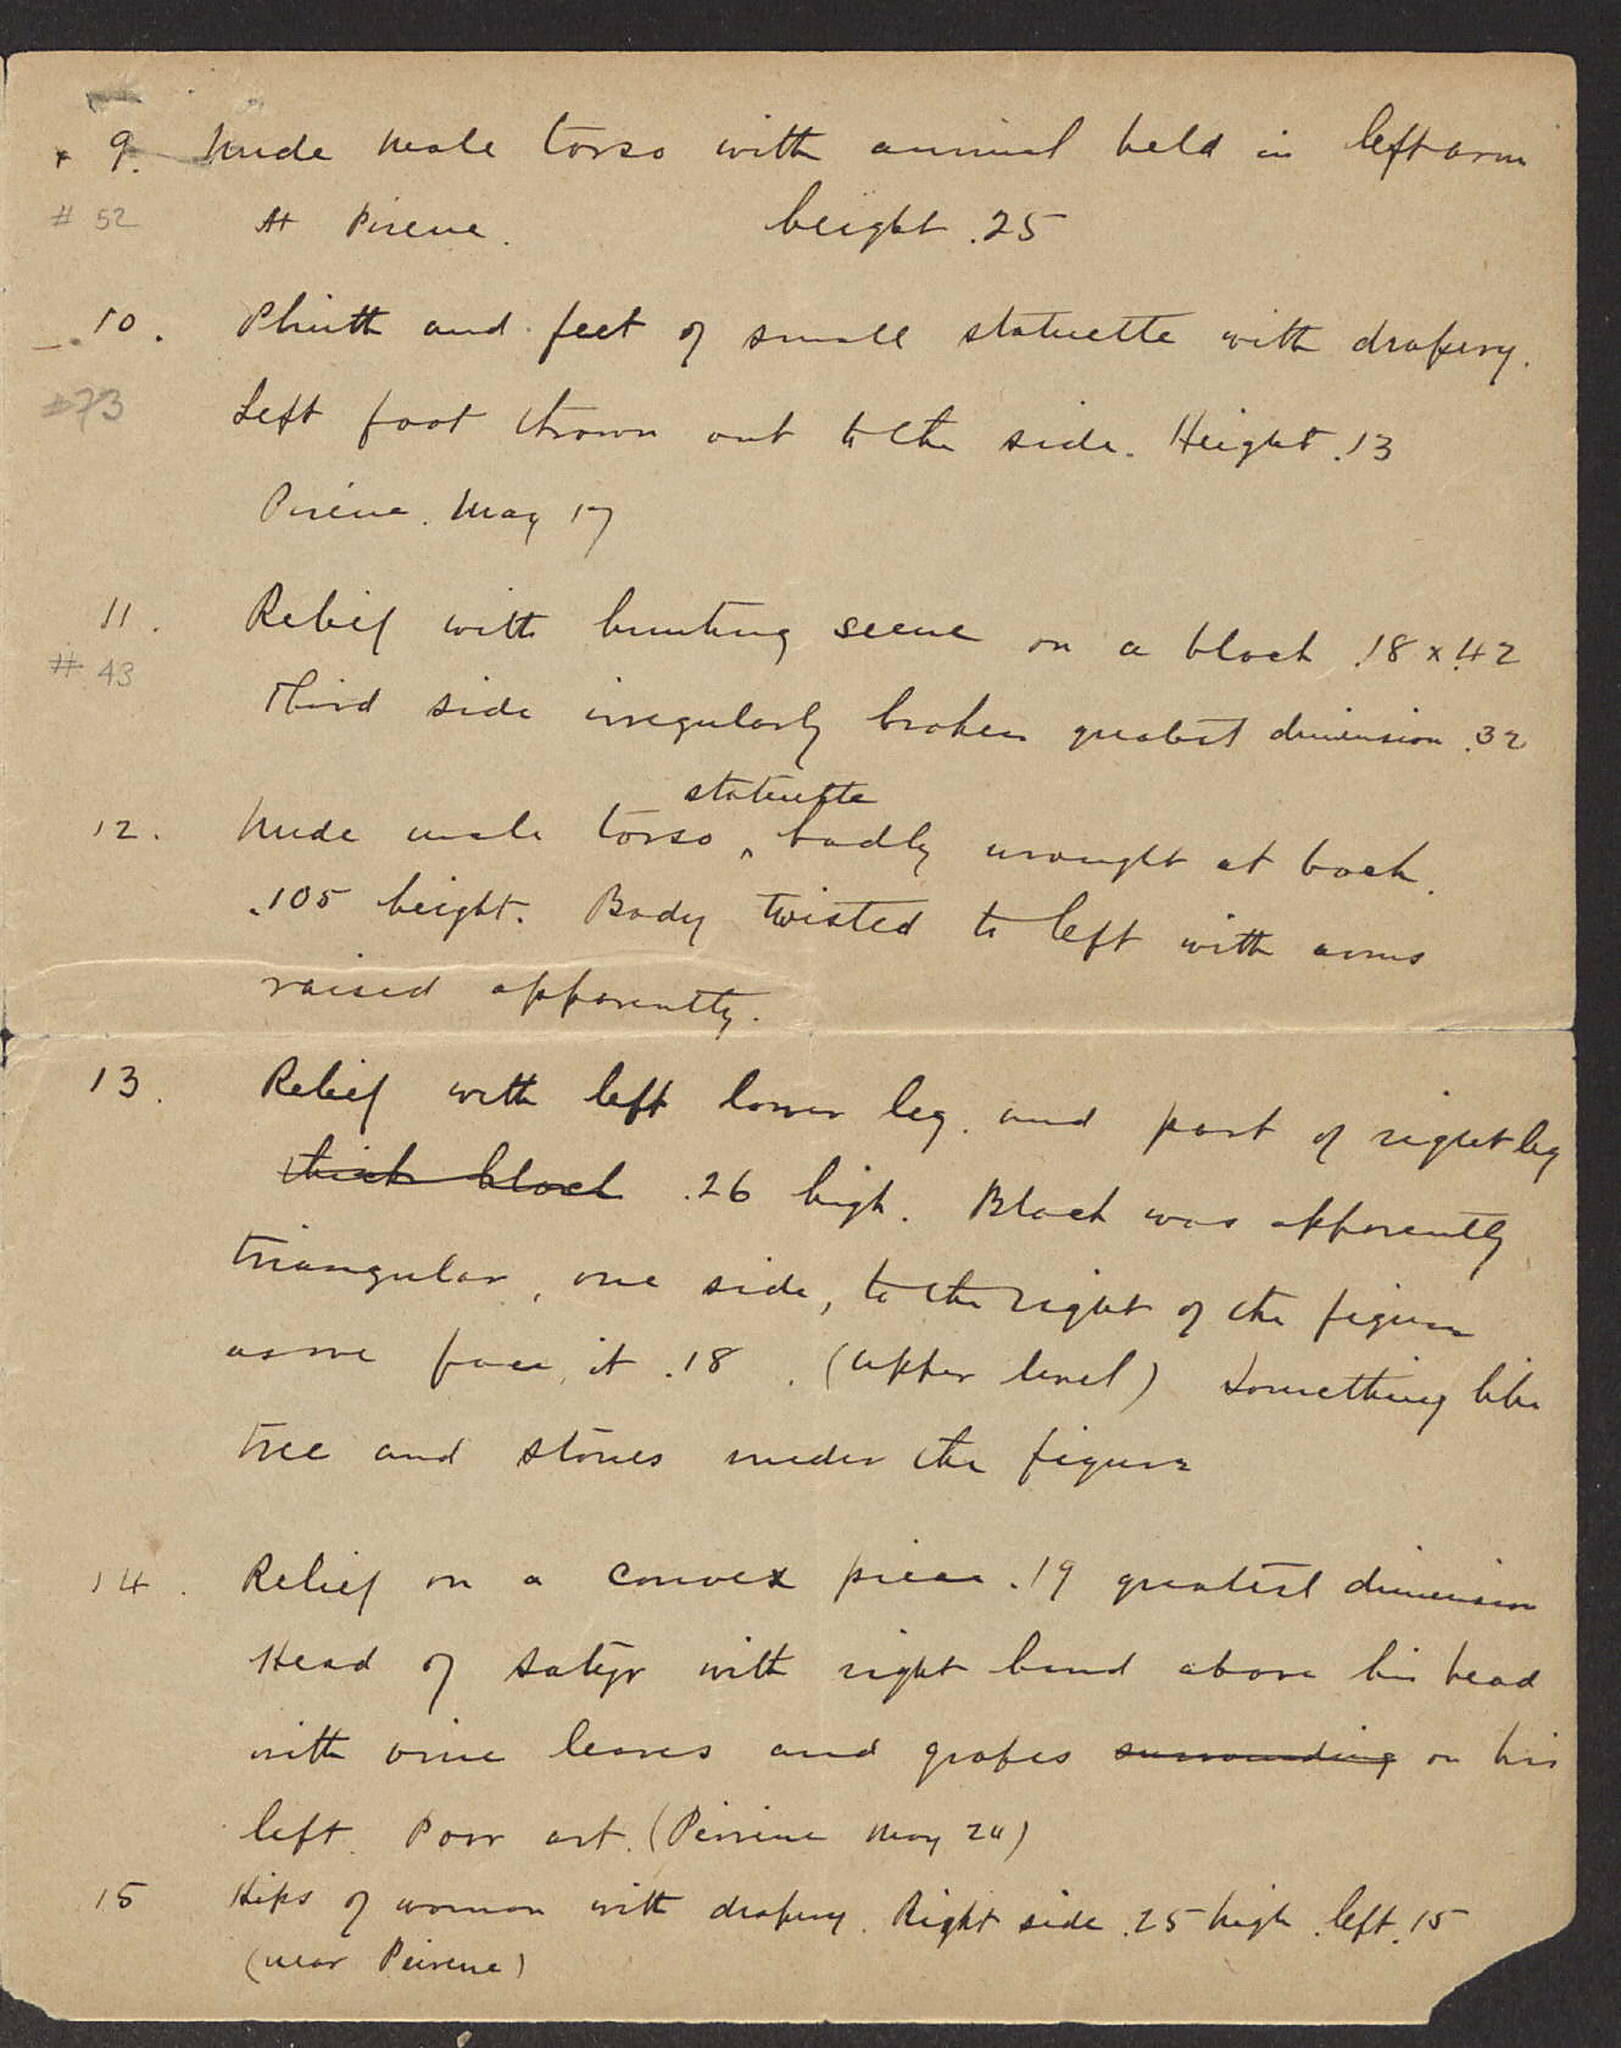 x 9. Nude male torso with animal held in left arm
# 52 At Pirene. height .25
10. Plinth and feet of small statuette with drapery.
#73 Left foot thrown out to the side. Height .13
Pirene. May 17
11. Relief with hunting scene on a block .18 x .42
# 43 Third side irregularly broken greatest dimension .32
statuette
12. Nude male torso ^ badly wrought at back.
.105 height. Body twisted to left with arms
raised apparently.
13. Relief with left lower leg. and part of right leg
thick block .26 high. Block was apparently
triangular, one side, to the right of the figure
as we face it .18. (upper level) Something like
tree and stones under the figure
14. Relief on a convex piece .19 greatest dimension
Head of satyr with right hand above his head
with vine leaves and grapes surrounding on his
left. Poor art. (Peirene May 24)
15 Hips of woman with drapery. Right side .25 high. left .15
(near Peirene)